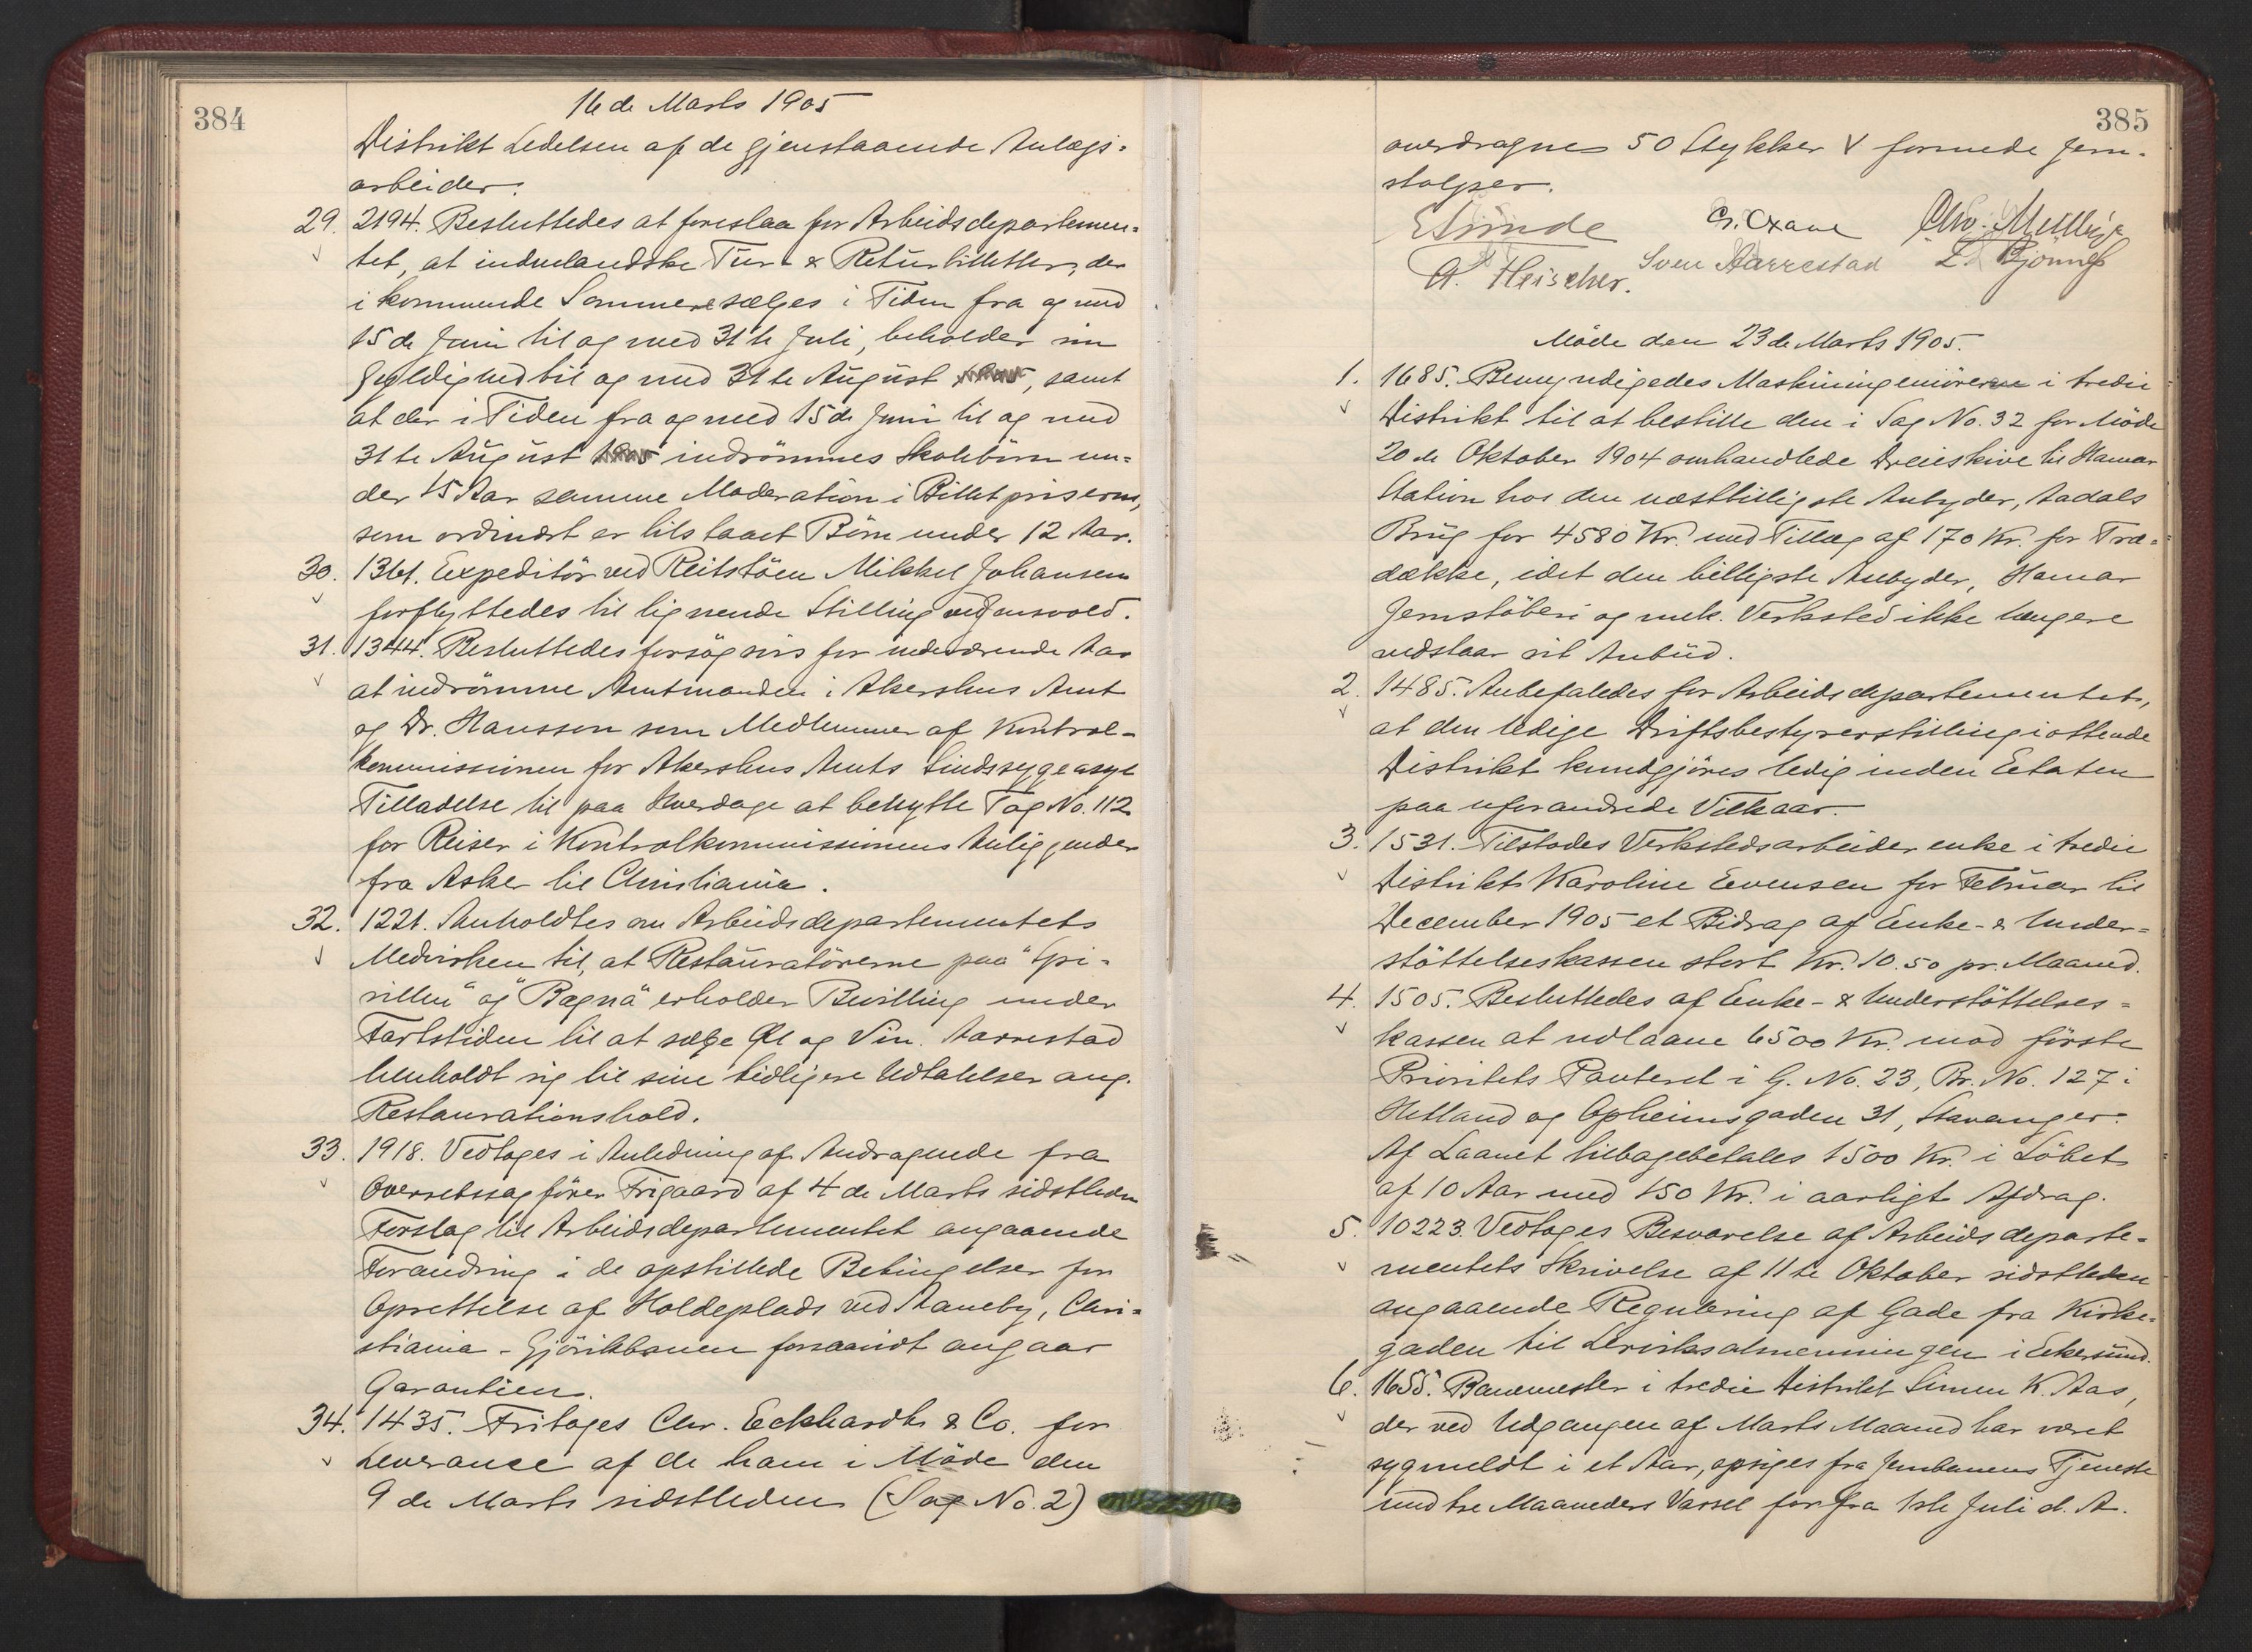 384
16 de Marts 1905
Distrikt Ledelsen af de gjenstaaende Anlægs-
arbeider.
29. 2194. Besluttedes at foreslaa for Arbeidsdepartemen-
tet, at indenlandske Tur- & Returbilletter, der
i kommende Sommer sælges i Tiden fra og med
15 de Juni til og med 31 te Juli, beholder sin
Gyldighed til og med 31 te August 1905, samt
at der i Tiden fra og med 15 de Juni til og med
31 te August 1905 indrömmes Skolebörn un-
der 15 Aar samme Moderation i Billetpriserne,
som ordinært er tilstaaet Börn under 12 Aar.
30. 1361. Expeditör ved Reitstöen Mikkel Johansen
forflyttedes til lignende Stilling ved Jensvold.
31. 1344. Besluttedes forsögsvis for indeværende Aar
at indrömme Amtmanden i Akershus Amt
og Dr. Hansson som Medlemmer af Kontrol-
kommissionen for Akershus Amts Sindssygeasyl
Tilladelse til paa Hverdage at benytte Tog No. 112
for Reiser i Kontrolkommissionens Anliggender
fra Asker til Christiania.
32. 1221. Anholdtes om Arbeidsdepartementets
Medvirken til, at Restauratörerne paa "Spi-
rillen" og "Bægna" erholder Bevilling under
Fartstiden til at sælge Öl og Vin. Aarrestad
henholdt sig til sine tidligere Udtalelser ang.
Restaurationshold.
33. 1918. Vedtoges i Anledning af Andragende fra
Overretssagförer Frigaard af 4 de Marts sidstleden
Forslag til Arbeidsdepartementet angaaende
Forandring i de opstillede Betingelser for
Oprettelse af Holdeplads ved Aaneby, Chri-
stiania-Gjövikbanen forsaavidt angaar
Garantien.
34. 1435. Fritoges Chr. Eckhardt & Co. for
Leverance af de ham i Möde den
9 de Marts sidstleden (Sag No. 2)
385
overdragne 50 Stykker V formede Jern-
stolper.
E Sünde Cr. Oxane Chr. Mellbye
A. Fleischer. Sven Aarrestad L. Bjönness
Möde den 23 de Marts 1905.
1. 1685. Bemyndigedes Maskiningeniören i tredie
Distrikt til at bestille den i Sag No. 32 for Möde
20 de Oktober 1904 omhandlede Dreieskive til Hamar
Station hos den næstbilligste Anbyder, Aadals
Brug for 4580 Kr. med Tillæg af 170 Kr. for Træ-
dække, idet den billigste Anbyder, Hamar
Jernstöberi og mek. Verksted ikke længere
vedstaar sit Anbud.
2. 1485. Anbefaledes for Arbeidsdepartementet,
at den ledige Driftsbestyrerstilling i ottende
Distrikt kundgjöres ledig inden Etaten
paa uforandrede Vilkaar.
3. 1531. Tilstodes Verkstedsarbeiderenke i tredie
Distrikt Karoline Evensen for Februar til
December 1905 et Bidrag af Enke- & Under-
stöttelseskassen stort Kr. 10.50 pr. Maaned.
4. 1505. Besluttedes af Enke- & Understöttelses-
kassen at udlaane 6500 Kr. mod förste
Prioritets Panteret i G. No. 23, Br. No. 127 i
Hetland og Opheimsgaden 31, Stavanger.
Af Laanet tilbagebetales 1500 Kr. i Löbet
af 10 Aar med 150 Kr. i aarligt Afdrag.
5. 10223. Vedtoges Besvarelse af Arbeidsdeparte-
mentets Skrivelse af 11 te Oktober sidstleden
angaaende Regulering af Gade fra Kirke-
gaden til Lerviksalmenningen i Ekersund.
6. 1655. Banemester i tredie Distrikt Simen K. Aas,
der ved Udgangen af Marts Maaned har været
sygmeldt i et Aar, opsiges fra Jernbanens Tjeneste
med tre Maaneders Varsel for fra 1ste Juli d. A.